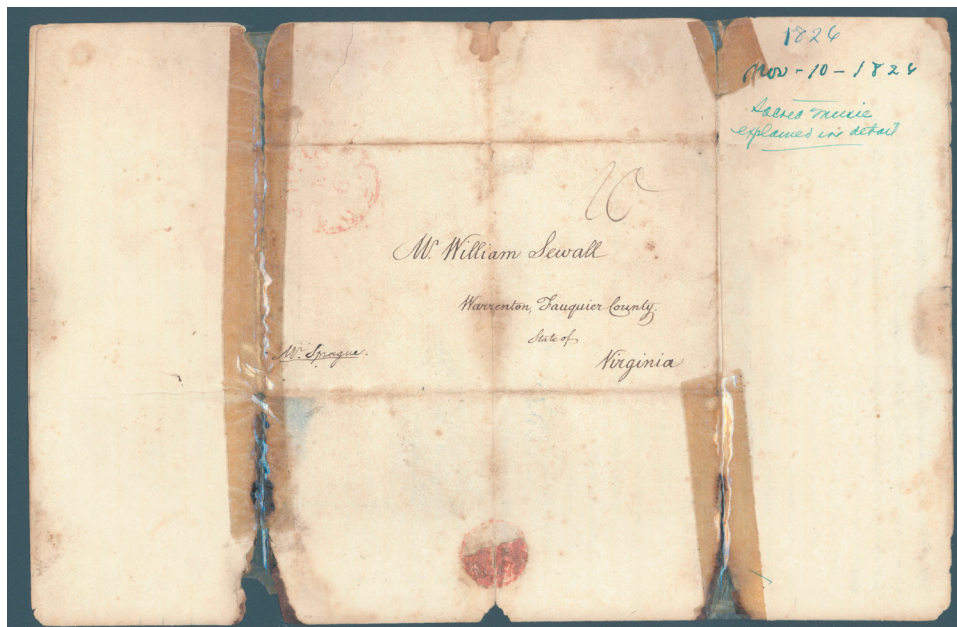 1826
Nov-10-1826
Sacred Music
explained in detail
10
Mr. William Sewall
Warrenton, Fauquier County.
State of
Virginia
Mr. Sprague.